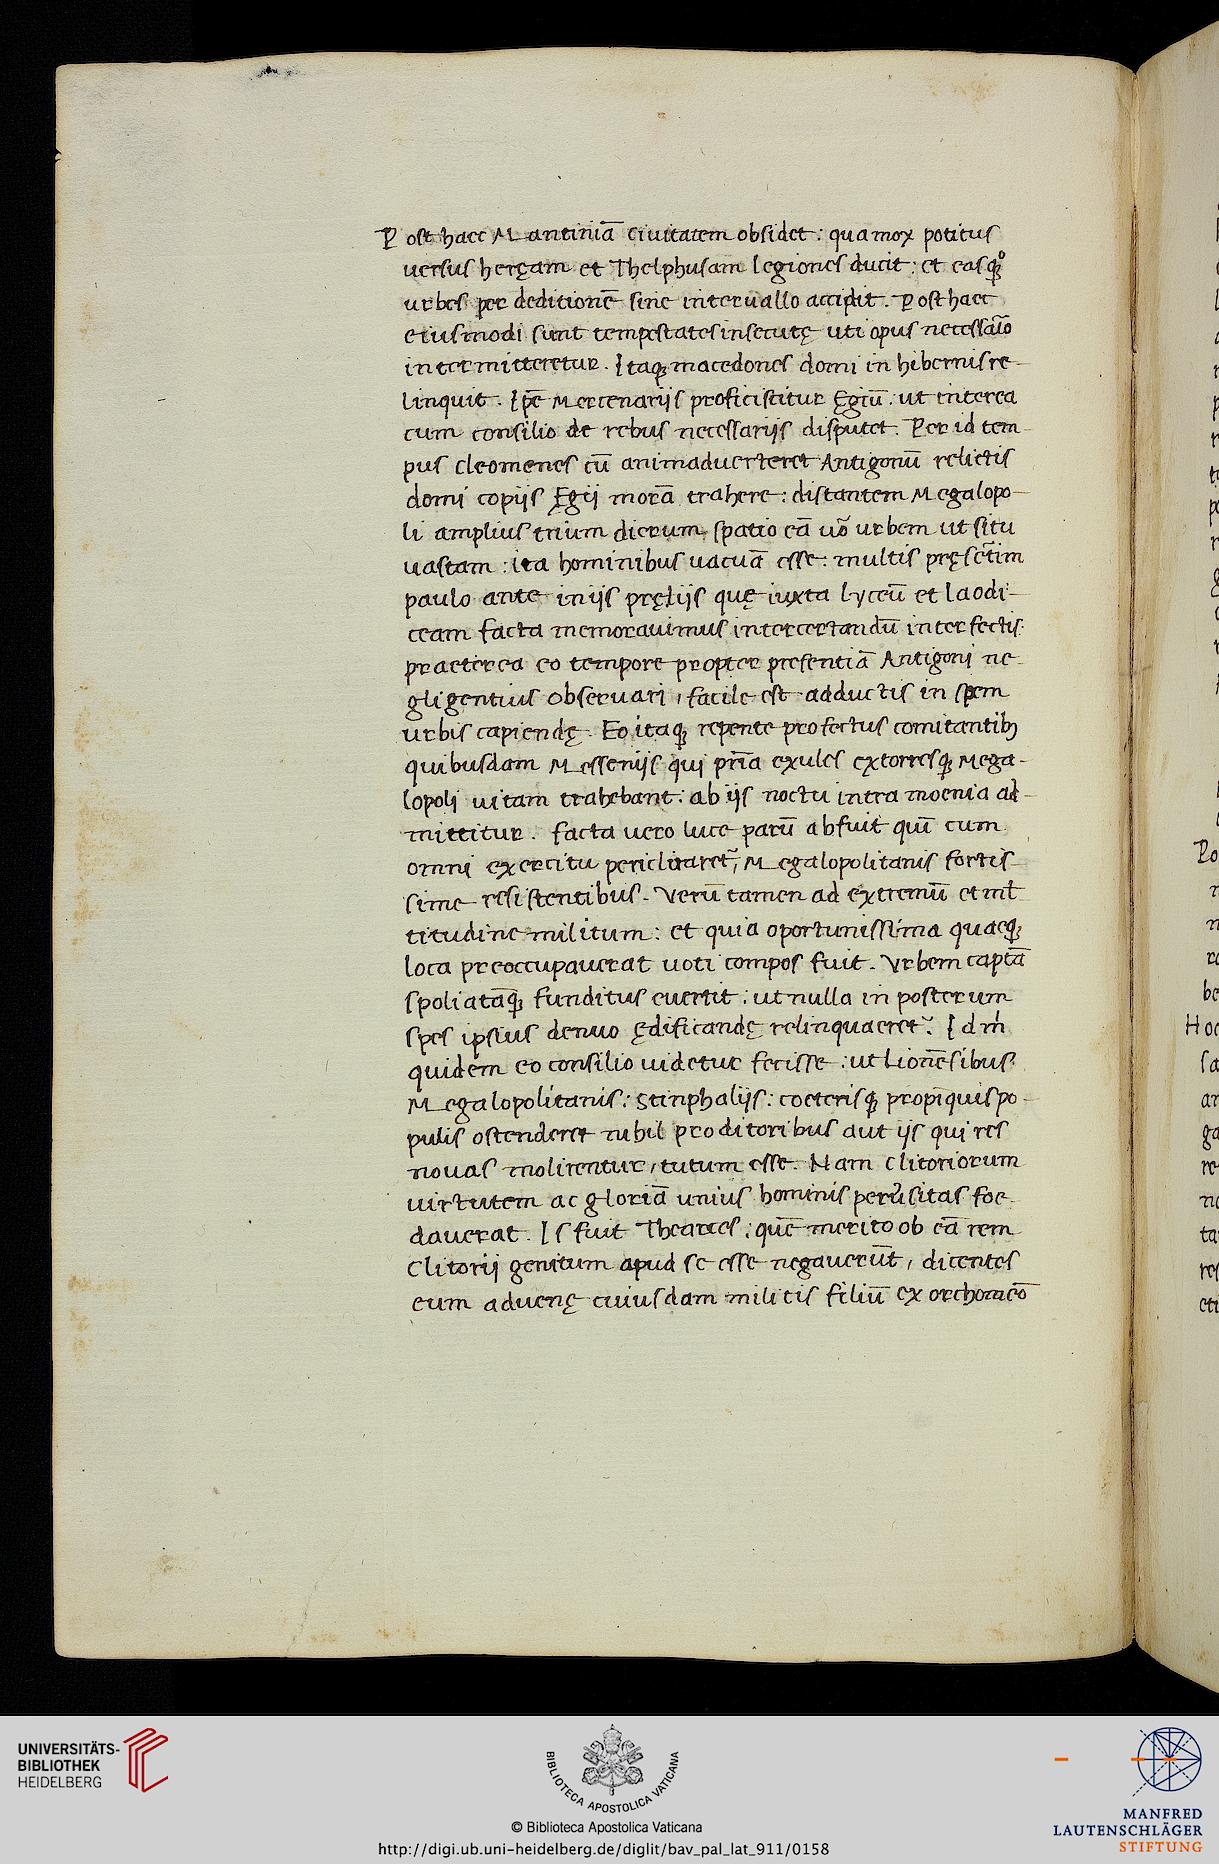 Post haec Mantiniā ciuitatem obsidet: qua mox potitus
uersus heręam et Thelphusam legiones ducit: et easqꝫ
urbes per deditionē sine interuallo accipit. Post haec
eiusmodi sunt tempestates insecutę uti opus necessaīo
intermitteretur. Itaqꝫ macedones domi in hibernis re-
linquit. Ipē Mercenarijs proficiscitur Ęgiū: ut interea
cum consilio de rebus necessarijs disputet. Per id tem-
pus Cleomenes cū animaduerteret Antigonū relictis
domi copijs Ęgij morā trahere: distantem Megalopo-
li amplius trium dierum spatio eā uō urbem ut situ
uastam: ita hominibus uacuā esse: multis pręsētim
paulo ante in ijs pręlijs quę iuxta Lyceū et Laodi-
ceam facta memorauimus intercertandū interfectis:
praeterea eo tempore propter presentiā Antigoni ne-
gligentius obseruari, facile est adductis in spem
urbis capiendę. Eo itaqꝫ repente profectus comitantibꝫ
quibusdam Messenijs qui prīa exules extorresqꝫ Mega-
lopoli uitam trahebant: ab ijs noctu intra moenia ad-
mittitur. facta uero luce parū abfuit quī cum
omni exercitu periclitaret͂, Megalopolitanis fortis-
sime resistentibus. Verū tamen ad extremū et ml̄-
titudine militum: et quia oportunissima quaeqꝫ
loca preoccupauerat uoti compos fuit. Vrbem captā
spoliatāqꝫ funditus euertit: ut nulla in posterum
spes ipsius denuo ędificandę relinquaeret͂. Id m̄
quidem eo consilio uidetur fecisse: ut Lionēsibus:
Megalopolitanis: Stinphalijs: coeterisqꝫ propīquis po-
pulis ostenderet nihil proditoribus aut ijs qui res
nouas molirentur, tutum esse. Nam Clitoriorum
uirtutem ac gloriā unius hominis peruˀsitas foe-
dauerat. Is fuit Thearces: quē merito ob eā rem
Clitorij genitum apud se esse negauerūt, dicentes
eum aduenę cuiusdam militis filiū ex orchomeō
UNIVERSITÄTS-
BIBLIOTHEK
HEIDELBERG
BIBLIOTECA APOSTOLICA VATICANA
© Biblioteca Apostolica Vaticana
http://digi.ub.uni-heidelberg.de/diglit/bav_pal_lat_911/0158
MANFRED
LAUTENSCHLÄGER
STIFTUNG